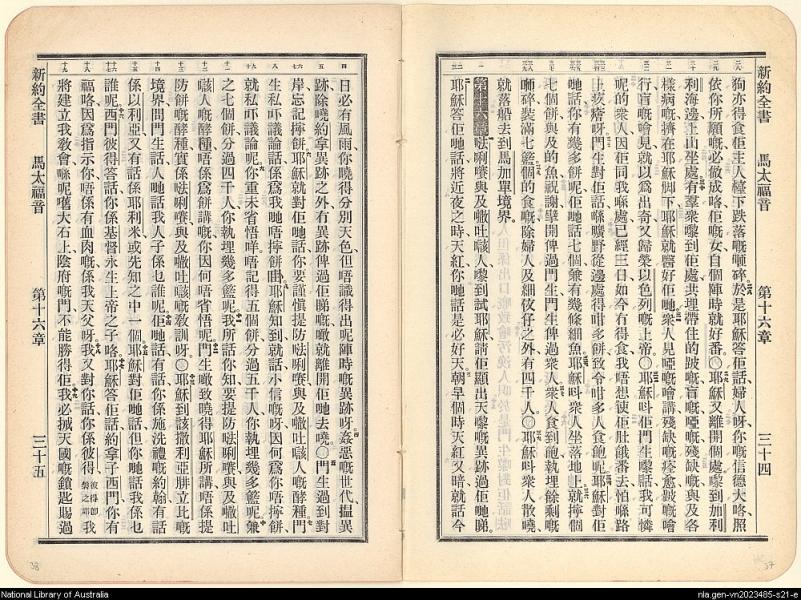 新約全書　馬太福音　第十六章　三十四
狗亦得食佢主人檯下跌落嘅嚹碎於是耶穌答佢話婦人呀你嘅信德大咯照
依你所願嘅必做成咯佢嘅女自個陣時就好番○耶穌又離開個處嚟到加利
利海邊上山坐處有羣衆嚟到佢處共埋帶住的跛嘅盲嘅啞嘅殘缺嘅與及各
樣病嘅擠在耶穌脚下耶穌就醫好佢哋衆人見啞嘅噲講殘缺嘅痊愈跛嘅噲
行盲嘅噲見就以爲出奇又歸榮以色列嘅上帝○耶穌呌佢門生嚟話我可憐
呢的衆人因佢同我喺處已經三日如今冇得食我唔想使佢肚餓番去怕喺路
上疲瘠呀門生對佢話喺曠野從邊處得咁多餅致令咁多人食飽呢耶穌對佢
哋話你有幾多餅呢佢哋話七個兼有幾條細魚耶穌呌衆人坐落地上就擰個
七個餅與及的魚祝謝擘開俾過門生門生俾過衆人衆人食到飽執埋餘剩嘅
嚹碎裝滿七籃個的食嘅除婦人及細仪仔之外有四千人○耶穌呌衆人散嘵
就落船去到馬加單境界
第十六章 㗎唎㘔與及㘔吐㗒人嚟到試耶穌請佢顯出天嚟嘅異跡過佢哋睇
耶穌答佢哋話將近夜之時天紅你哋話是必好天朝早個時天紅又暗就話今
日必有風雨你嘵得分別天色但唔識得出呢陣時嘅異跡呀姦惡嘅世代搵異
跡除嘵約拿異跡之外有異跡俾過佢睇嘅㘔就離開佢哋去嘵○門生過到對
岸忘記擰餅耶穌就對佢哋話你要謹愼提防㗎唎㘔與及㘔吐㗒人嘅酵種門
生私吓議論話係爲我哋唔擰餅啩耶穌知到就話小信嘅呀因何爲你唔擰餅
就私吓議論呢你重未省悟咩唔記得五個餅分過五千人你執埋幾多籃呢兼
之七個餅分過四千人你執埋幾多籃呢我所話你知要提防㗎唎㘔與及㘔吐
㗒人嘅酵種唔係爲餅講嘅你因何唔省悟呢門生㘔致曉得耶穌所講唔係提
防餅嘅酵種實係㗎唎㘔與及㘔吐㗒嘅敎訓呀○耶穌到該撒利亞腓立比嘅
境界問門生話人哋話我人子係乜誰呢佢哋話有話你係施洗禮嘅約翰有話
係以利亞又有話係耶利米或先知之中一個耶穌對佢哋話但你哋話我係乜
誰呢西門彼得答話你係基督永生上帝之子咯耶穌答佢話約拿子西門你有
福咯因爲指示你唔係有血肉嘅係我天父呀我又對你話你係彼得彼得卽磐之耶我
將建立我敎會喺呢舊大石上陰府嘅門不能勝得佢我必㨢天國嘅鎖匙賜過
新約全書　馬太福音　第十六章　三十五
38
37
National Library of Australia
nla.gen-vn2023485-s21-e